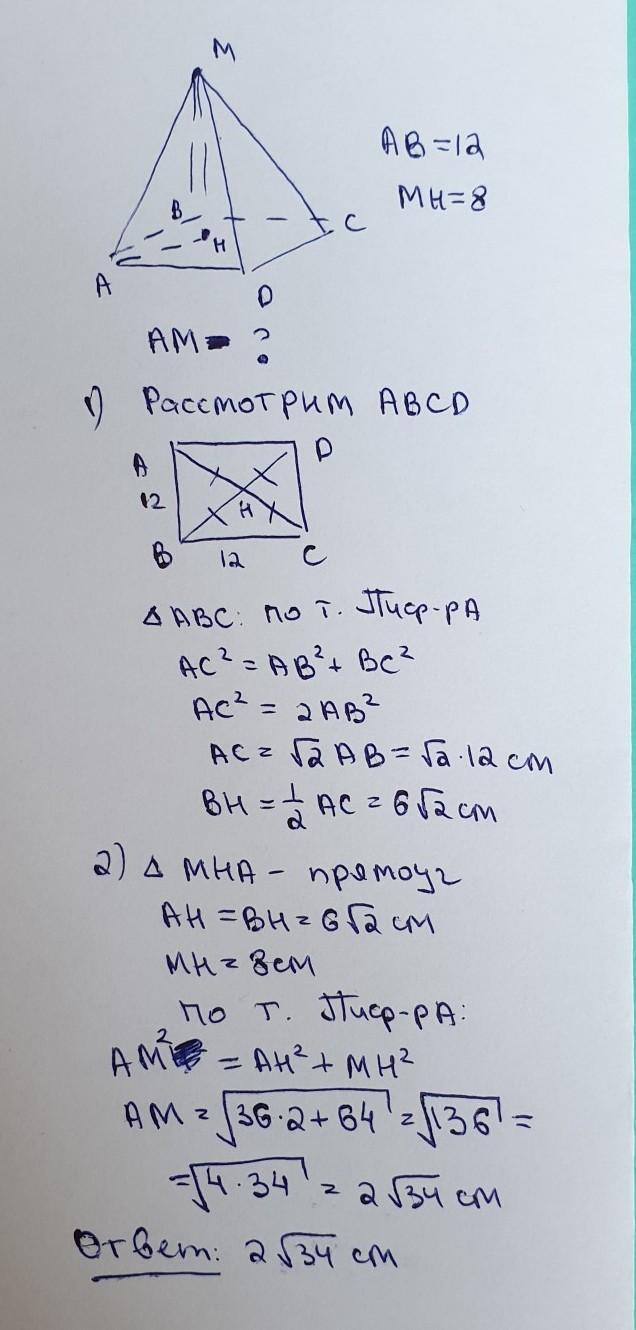 M
AB=12
MH=8
B
C
H
A
D
AM - ?
1) Рассмотрим ABCD
A
D
12
H
B
12
C
Δ ABC: по т. Пиф-рА
AC² = AB² + BC²
AC² = 2AB²
AC = √2 AB = √2·12 см
BH = 1/2 AC = 6√2 см
2) Δ MHA - прямоуг
AH = BH = 6√2 см
MH = 8см
по т. Пиф-рА:
AM² = AH² + MH²
AM = √36·2+64 = √136 =
= √4·34 = 2√34 см
Ответ: 2√34 см